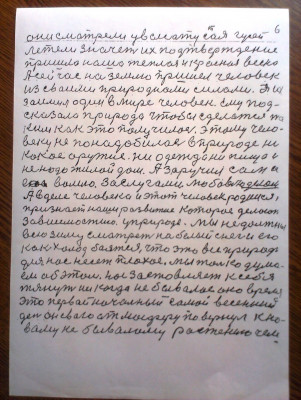 6
они смотрели увсмату стая гусей
летели значет их подтверждение
пришло наша теплая и красная весна
А сейчас на землю пришел человек
из своими природними силами. Эти
заимил один в мире человек. Ему под-
сказала природа чтобы сделатся та
ким как это получилос. Этому чело-
веку не понадобилас в природе ни
какое оружие. ни одежда ни пища и
не надо жилой дом. А Заручил сам и
волю. Заслугами любов
А в деле человека и этот человек родился,
признает наши развитие которое делают
Зависимостю у природе. Мы не должны
всю зиму сматрет на белый снег и его
как холод боятся, что это вся природа
для нас несет плохое. мы толко дума-
ем об этом. нас застовляет к себя
тянут ни когда не бывалое оно время
Это первоначалный самой весенний
ден он свего атмосферу повернул к но-
вому не бывалому растению чем